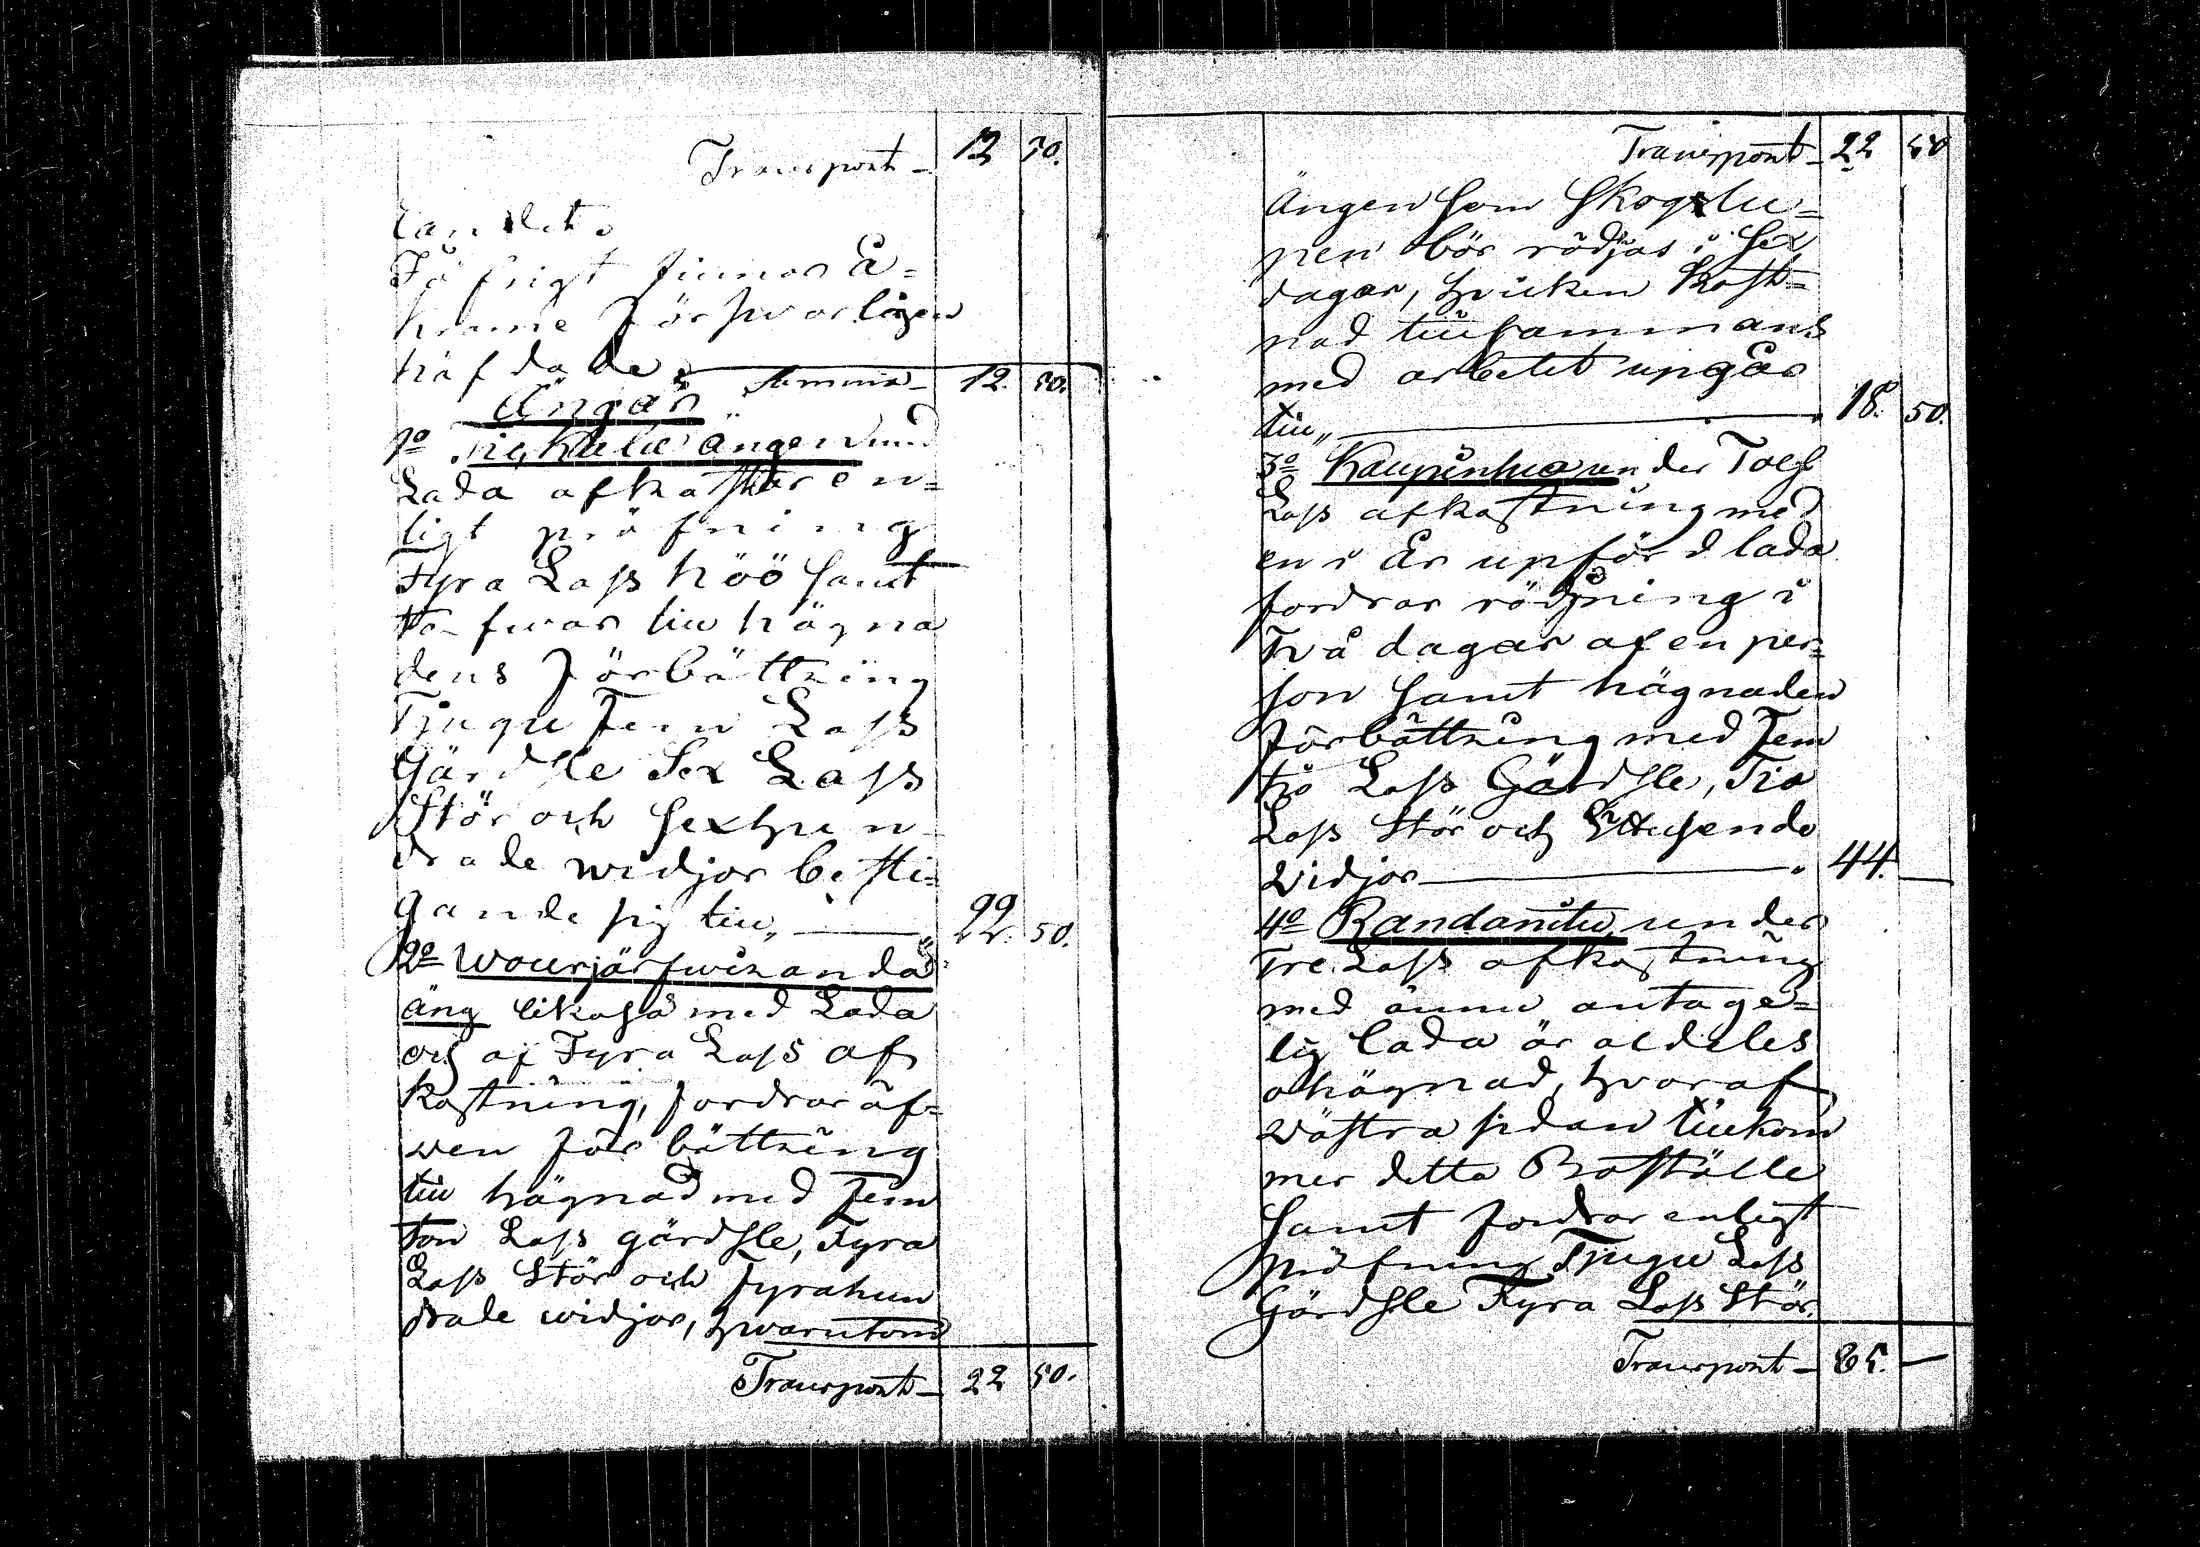 Transport - 12 50.
landet.
I öfrigt finnas å=
krarne försvarligen
häfdade.
Summa - 12. 50.
Ängar
1º änger med
Lada afkastar en=
ligt pröfning
Fyra Lass höö samt
tarfwar till hägna
dens förbättring
Tjugu Fem Lass
Gärdsle Sex Lass
Stör och sexhun-
drade widjor besti=
gande sig till, — 22. 50.
2º
äng likaså med Lada
och af Fyra Lass af
kastning, fordrar äf=
wen förbättring
till hägnad med Fem
ton Lass gärdsle, Fyra
Lass Stör och Fyrahun
drade widjor, hwarutom
Transport - 22 50.
Transport - 22 50
Ängen som skoglu=
pen bör rödjas i sex
dagar, hvilken kost=
nad tillsammans
med arbetet upgår
till, — 18. 50.
3º Kaupinhua under Tolf
Lass afkastning med
en i år upförd lada
fordrar rödjning i
Två dagar af en per=
son samt hägnaden
förbättring med Fem
tio Lass Gärdsle, Tio
Lass Stör och Ettusende
Widjor — 44. —
4º Randanitu, under
Tre Lass afkastning
med ännu antage=
lig lada är aldeles
ohägnad, hvaraf
wästra sidan tillkom
mer detta Boställe
samt fordrar enligt
pröfning Tjugu Lass
Gärdsle Fyra Lass Stör.
Transport - 85. —